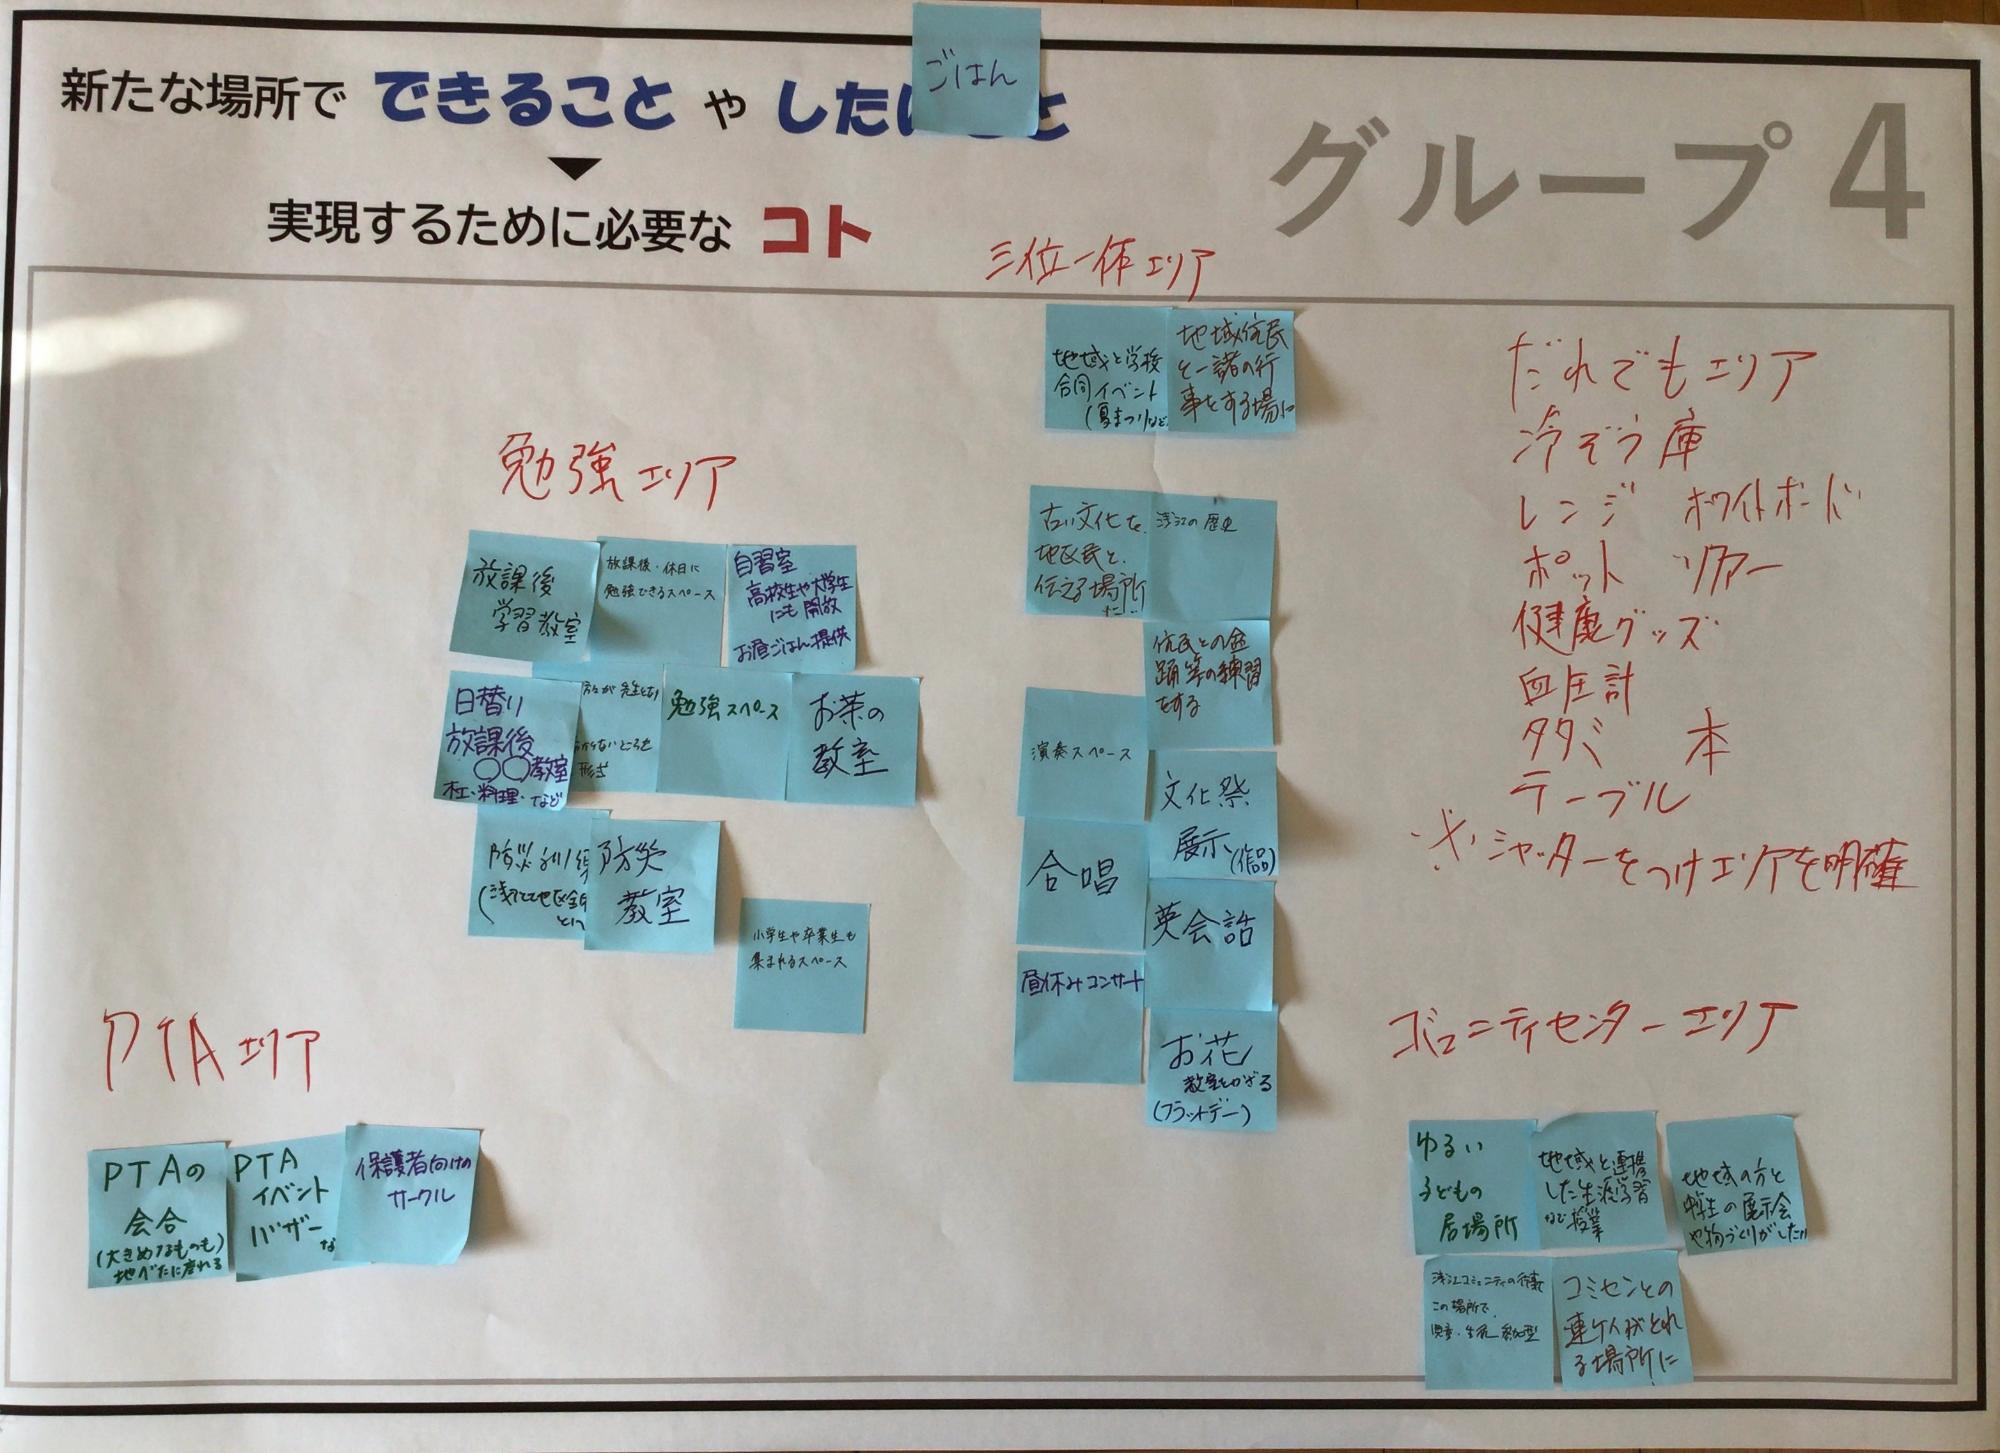 新たな場所で できること や した
ごはん
実現するために必要な コト
グループ 4
三位一体エリア
地域と学校
合同イベント
(夏まつりなど
地域住民
と一諸の行
事をする場に
古い文化を
地区民と
伝える場所
に
浅江の歴史
住民との
踊等の練習
をする
演奏スペース
文化祭
展示(作品)
合唱
英会話
昼休みコンサート
お花
教室をかざる
(フラットデー)
勉強エリア
放課後
学習教室
放課後・休日に
勉強できるスペース
自習室
高校生や大学生
にも開放
お昼ごはん提供
日替り
放課後
〇〇教室
木工・料理・など
が先生となり
からないところを
形式
勉強スペース
お茶の
教室
防災訓練
防災
教室
小学生や卒業生も
集まれるスペース
PTAエリア
PTAの
会合
(大きめなものも)
地べたに座れる
PTA
イベント
バザー
な
保護者向けの
サークル
だれでもエリア
冷ぞう庫
レンジ ホワイトボード
ポット ソファー
健康グッズ
血圧計
タタミ 本
テーブル
※シャッターをつけエリアを明確
コミュニティセンターエリア
ゆるい
子どもの
居場所
地域と連携
した生涯学習
など授業
地域の方と
中学生の展示会
や物づくりがしたい
浅江コミュニティの行事
この場所で
児童・生徒参加型
コミセンとの
連ケイがとれ
る場所に